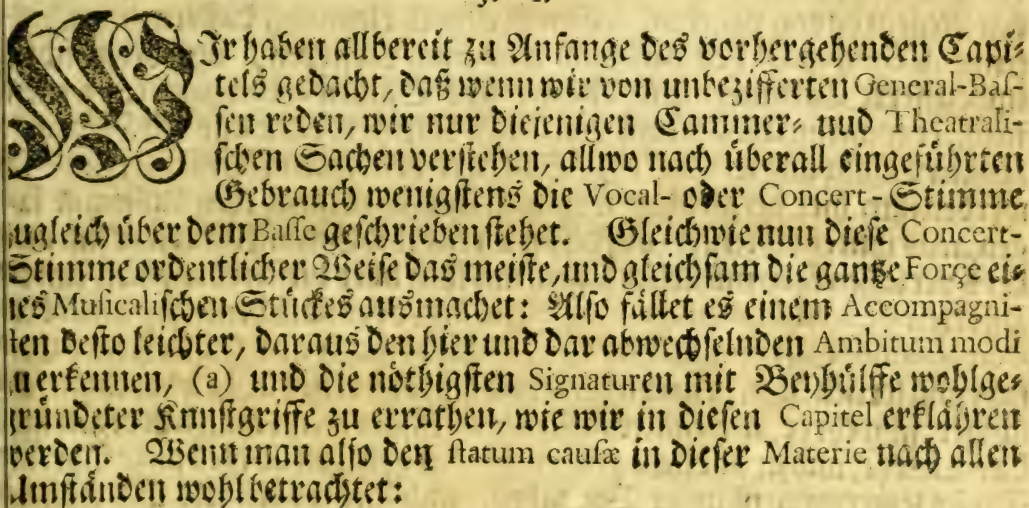 WIr haben allbereit zu Anfange des vorhergehenden Capi⸗
tels gedacht, daß wenn wir von unbezifferten General-Baſ-
ſen reden, wir nur diejenigen Cammer⸗ und Theatrali-
ſchen Sachen verſtehen, allwo nach überall eingeführten
Gebrauch wenigſtens die Vocal- oder Concert-Stimme
ugleich über dem Baſſe geſchrieben ſtehet. Gleichwie nun dieſe Concert-
Stimme ordentlicher Weiſe das meiſte, und gleichſam die gantze Forçe ei⸗
nes Muſicaliſchen Stückes ausmachet: Alſo fället es einem Accompagni-
ſten deſto leichter, daraus den hier und dar abwechſelnden Ambitum modi
u erkennen, (a) und die nöthigſten Signaturen mit Beyhülffe wohlge⸗
ründeter Kunſtgriffe zu errathen, wie wir in dieſen Capitel erklähren
werden. Wenn man alſo den ſtatum cauſæ in dieſer Materie nach allen
Umſtänden wohl betrachtet: